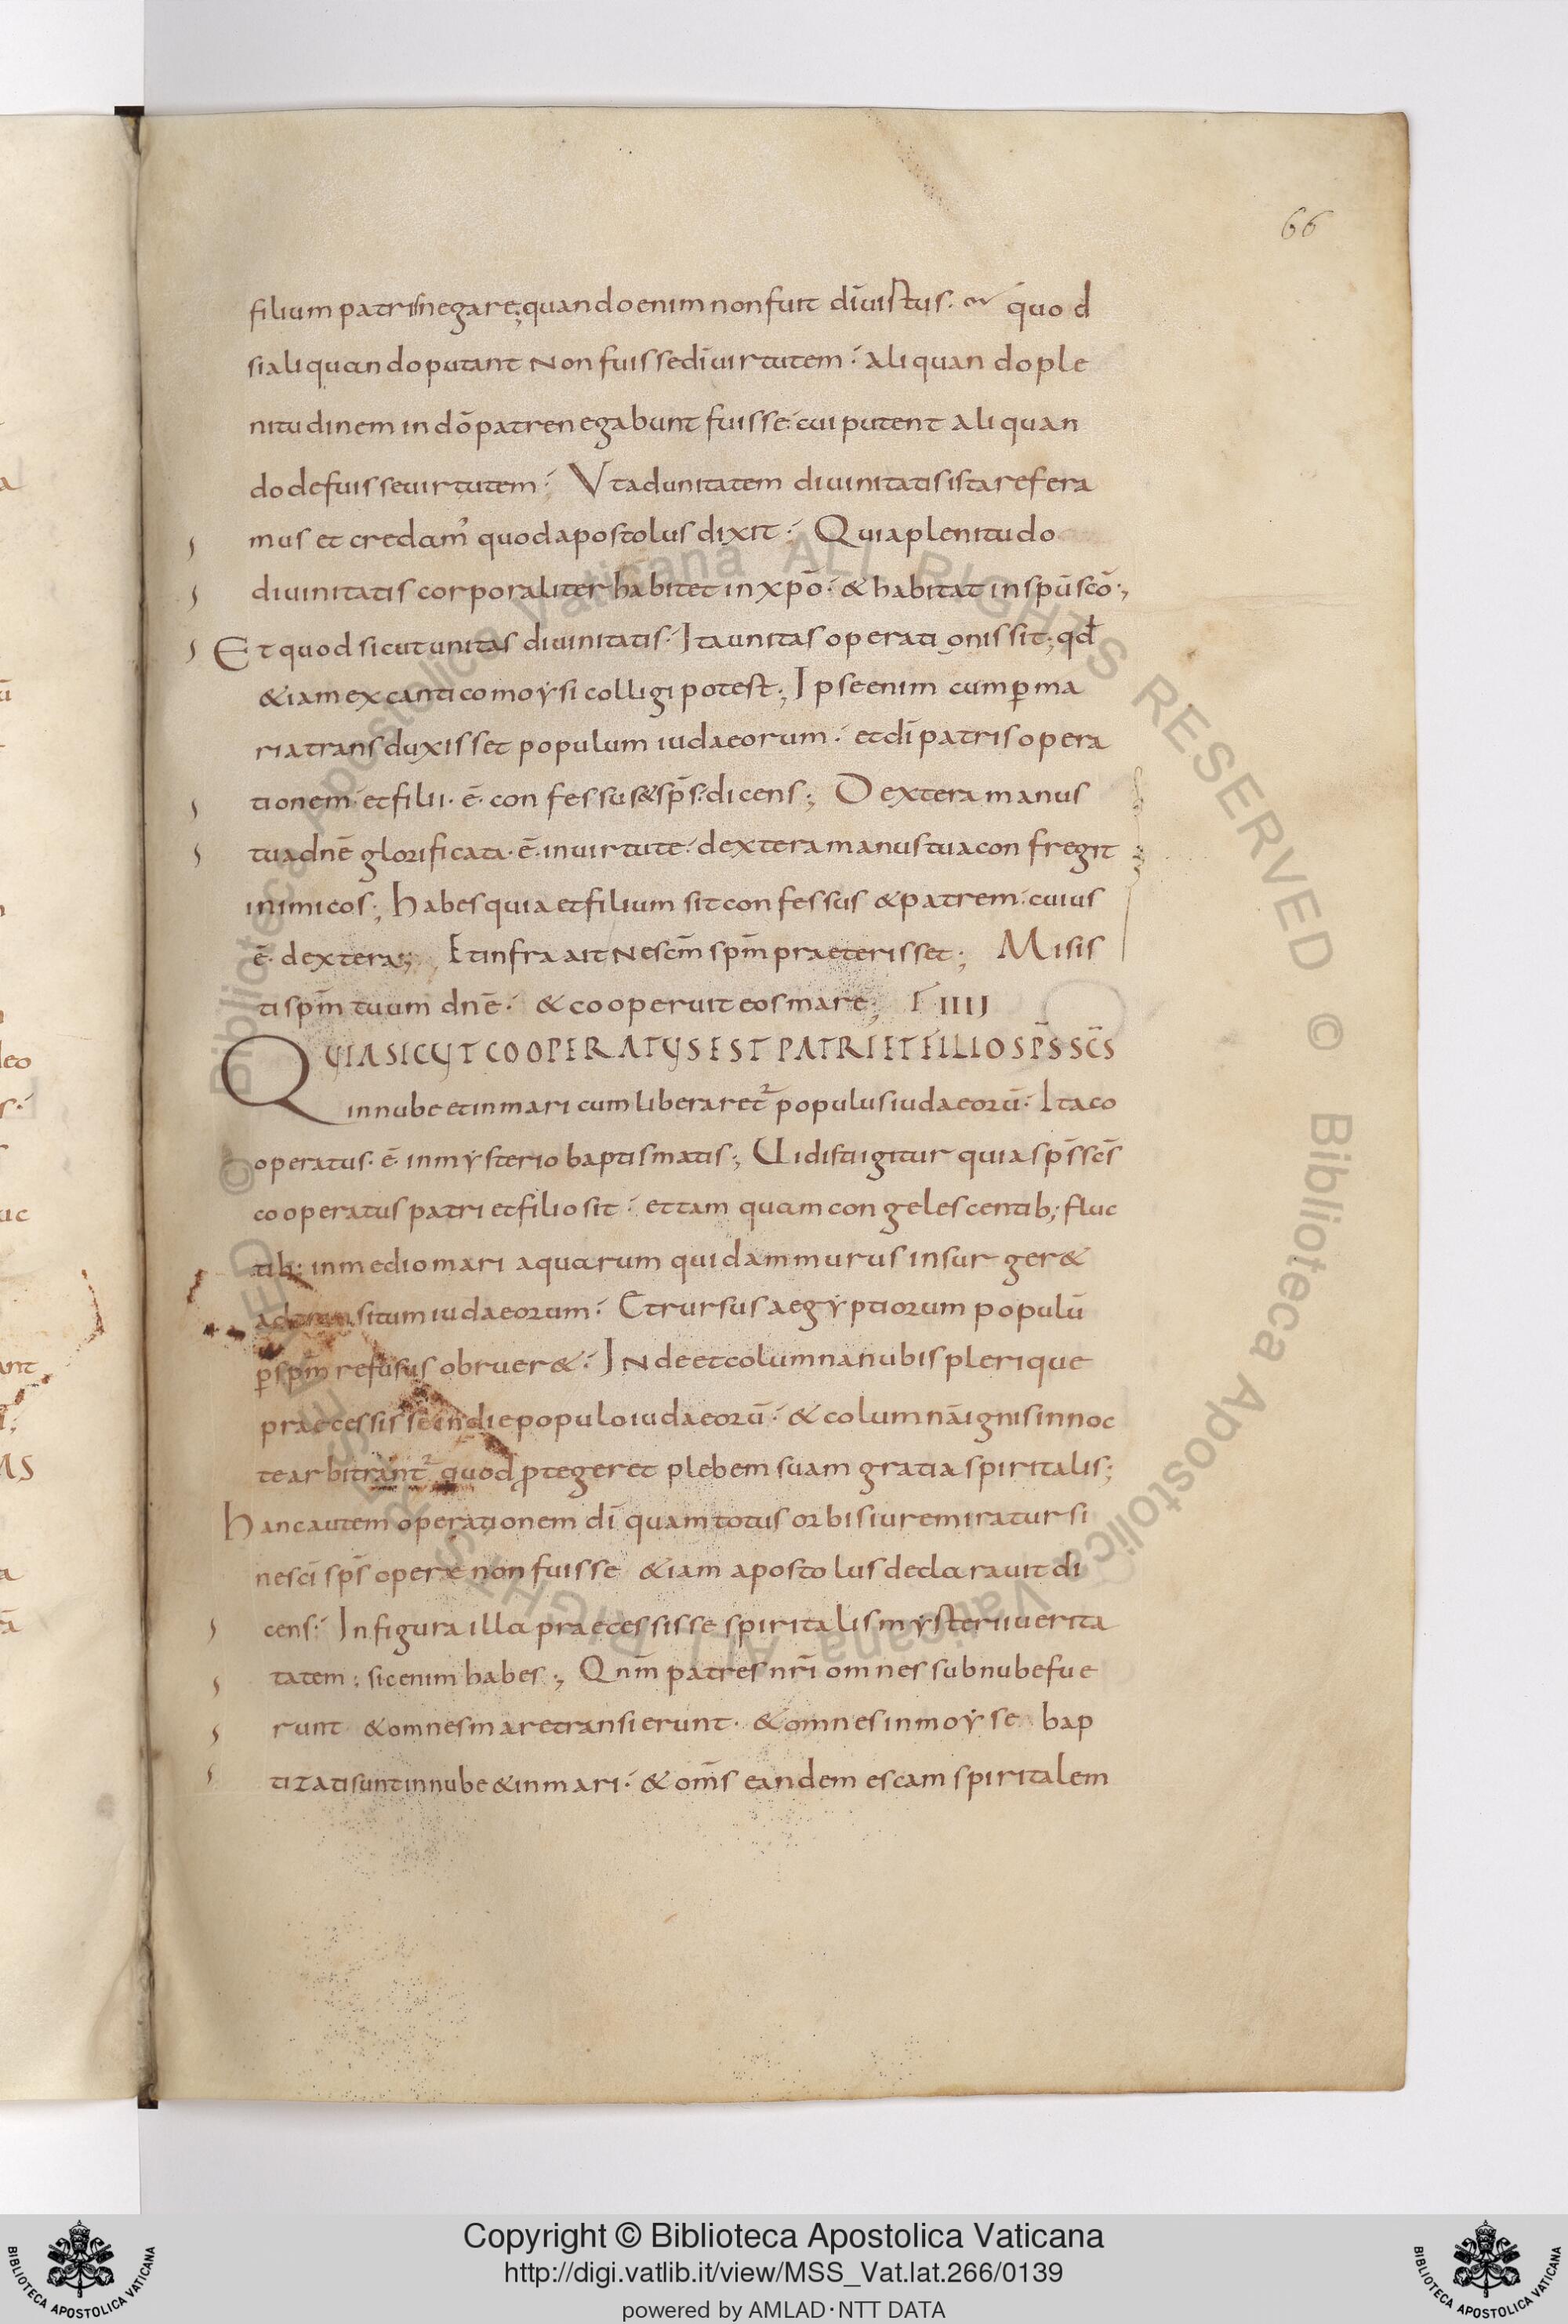 66
filium patris negare; quando enim non fuit dī virtus. quod
si aliquando putant Non fuisse dī virtutem: aliquando ple
nitudinem in dō patre negabunt fuisse: cui putent aliquan
do defuisse virtutem: Vt ad unitatem divinitatis ista refera
mus et credam' quod apostolus dixit: Quia plenitudo
divinitatis corporaliter habitet in xpō: & habitat in spū scō;
Et quod sicut unitas divinitatis. Ita unitas operationis sit; qđ
&iam ex cantico moysi colligi potest; Ipse enim cum p̄ ma
ria transduxisset populum iudaeorum: et dī patris opera
tionem et filii. ē. confessus & sp̄s. dicens; Dextera manus
tua dn̄e glorificata. ē. in virtute. dextera manus tua confregit
inimicos; habes quia et filium sit confessus & patrem: cuius
ē. dextera; Et infra ait Ne sc̄m sp̄m praeterisset; Misis
ti sp̄m tuum dn̄e: & cooperuit eos mare; IIII
QUIA SICUT COOPERATUS EST PATRI ET FILIO SP̄S SC̄S
in nube et in mari cum liberaret᷑ populus iudaeorū. Ita co
operatus. ē. in mysterio baptismatis; Uidisti igitur quia sp̄s sc̄s
cooperatus patri et filio sit: et tam quam congelescentib; fluc
tib; in medio mari aquarum quidam murus insurger&
ad transitum iudaeorum: Et rursus aegyptiorum populū
p̄ sp̄m refusus obruer&: INde et columna nubis plerique
praecessisse in die populo iudaeorū: & columnā ignis in noc
te arbitrant᷑ quod ꝓtegeret plebem suam gratia spiritalis;
hanc autem operationem dī quam totus orbis iure miratur si
ne scī sp̄s opere non fuisse &iam apostolus declaravit di
cens: In figura illa praecessisse spiritalis mysterii verita
tatem: sic enim habes; Qnm̄ patres nr̄i omnes sub nube fue
runt & omnes mare transierunt. & omnes in moyse bap
tizati sunt in nube & in mari. & om̄s eandem escam spiritalem
Copyright © Biblioteca Apostolica Vaticana
http://digi.vatlib.it/view/MSS_Vat.lat.266/0139
powered by AMLAD·NTT DATA